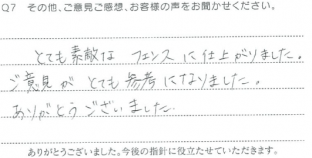 Q7 その他、ご意見ご感想、お客様の声をお聞かせください。
とても素敵な フェンスに仕上がりました。
ご意見が とても参考になりました。
ありがとうございました
ありがとうございました。今後の指針に役立たせていただきます。